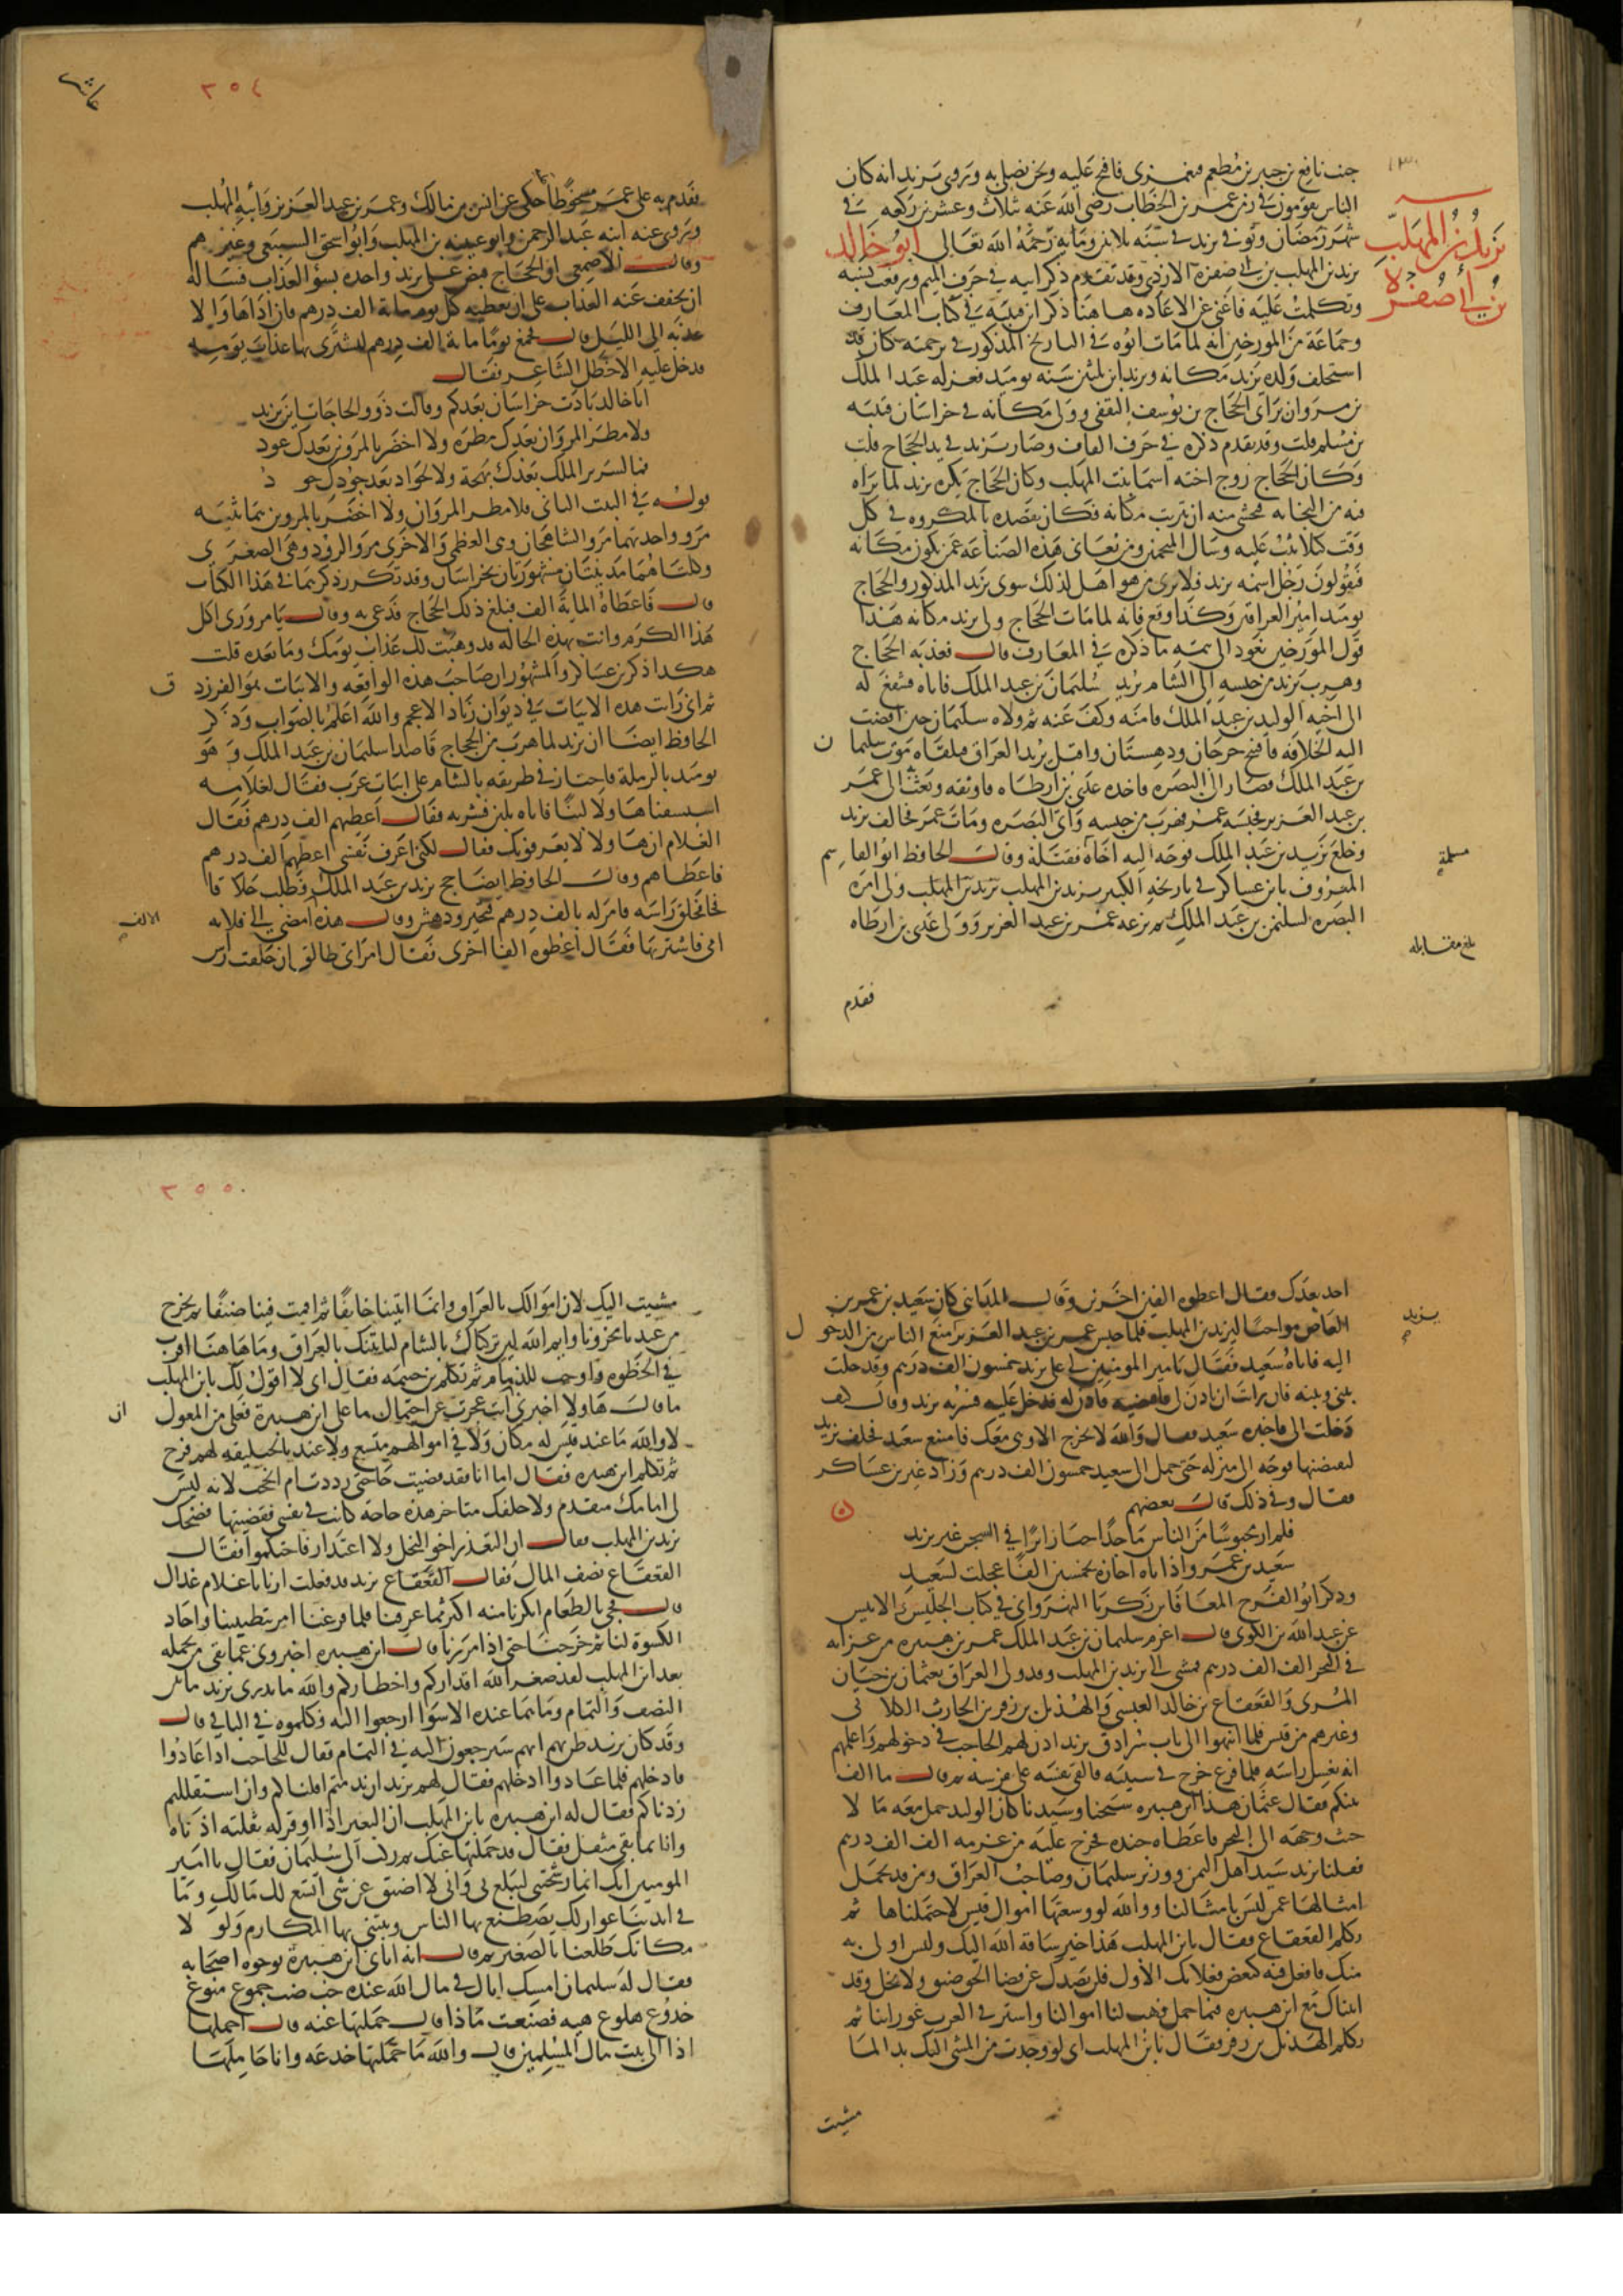 جنب نافع بن جبير بن مطعم فيغمزني فافتح عليه ونحن نصلي به وتروى يزيد انه كان
الناس يقومون في زمن عمر بن الخطاب رضى الله عنه بثلاث وعشرين ركعه في
شهر رمضان وتوفي يزيد في سنه ثلاثين ومايه رحمه الله تعالى ابو خالد
يزيد بن المهلب بن ابي صفرة
يزيد بن المهلب بن ابي صفره الازدي وقد تقدم ذكر ابيه في حرف الميم ورفعت نسبه
وتكلمت عليه فاغنى عن الاعاده هاهنا ذكر ابن قتيبه في كتاب المعارف
وجماعة من المورخين انه لما مات ابوه في التاريخ المذكور في ترجمته كان قد
استخلف ولده يزيد مكانه ويزيد ابن ثلثين سنه يوميد فعزله عبد الملك
بن مروان براى الحجاج بن يوسف الثقفي وولى مكانه في خراسان قتيبه
بن مسلم قلت وقد تقدم ذكره في حرف القاف وصار يزيد في يد الحجاج قلت
وكان الحجاج زوج اخته اسمها بنت المهلب وكان الحجاج يكره يزيد لما يراه
فيه من النجابه فخشى منه ان يترتب مكانه فكان يقصده بالمكروه في كل
وقت كيلا يثب عليه وسال المنجمين ومن يعانى هذه الصناعه عمن يكون مكانه
فيقولون رجل اسمه يزيد فلا يرى من هو اهل لذلك سوى يزيد المذكور والحجاج
يوميد امير العراقين وكذا وقع فانه لما مات الحجاج ولي يزيد مكانه هذا
قول المورخين نعود الى تتمه ما ذكره في المعارف قال فعذبه الحجاج
وهرب يزيد من حبسه الى الشام يريد سليمان بن عبد الملك فاتاه فشفع له
الى اخيه الوليد بن عبد الملك فامنه وكف عنه ثم ولاه سليمان حين افضت
اليه الخلافه فافتتح جرجان ودهستان واقبل يريد العراق فتلقاه موت سليمان
بن عبد الملك فصار الى البصره فاخذه عدى بن ارطاه فاوثقه وبعث الى عمر
بن عبد العزيز فحبسه عمر فهرب من حبسه واتى البصره ومات عمر فخالف يزيد
وخلع يزيد بن عبد الملك فوجه اليه اخاه مسلمة فقتله وقال الحافظ ابو القاسم
المعروف بابن عساكر في تاريخه الكبير يزيد بن المهلب ولى امره
البصره لسليمن بن عبد الملك ثم نزعه عمر بن عبد العزيز وولى عدى بن ارطاه
بلغ مقابله
فقدم
٣٥٤
عاشر
فقدم به على عمر مسخوطا حكى عن انس بن مالك وعمر بن عبد العزيز وابيه المهلب
وتروى عنه ابنه عبد الرحمن وابو عيينه بن المهلب وابو اسحق السبيعى وغيرهم
وقال الاصمعى ان الحجاج قبض على يزيد واخذه بسوء العذاب فساله
ان يخفف عنه العذاب على ان يعطيه كل يوم ماية الف درهم فان اداها والا
عذبه الى الليل قال فجمع يوما ماية الف درهم ليشترى بها عذاب يومه
فدخل عليه الاخطل الشاعر فقال
ابا خالد بادت خراسان بعدكم وقالت ذوو الحاجات اين يزيد
ولا مطر المروان بعدك مطره ولا اخضر بالمروين بعدك عود
فما لسرير الملك بعدك بهجة ولا لجواد بعد جودك جود
قوله في البيت الثاني فلا مطر المروان ولا اخضر بالمروين تثنيه
مرو واحدتهما مرو الشاهجان وهى العظمى والاخرى مرو الروذ وهى الصغرى
وكلتاهما مدينتان مشهورتان بخراسان وقد تكرر ذكرهما في هذا الكتاب
قال فاعطاه الماية الف فبلغ ذلك الحجاج فدعى به وقال يا مروزى اكل
هذا الكرم وانت بهذه الحاله قد وهبت لك عذاب يومك وما بعده قلت
هكذا ذكر بن عساكر والمشهور ان صاحب هذه الواقعه والابيات هو الفرزدق
ثم انى رايت هذه الابيات في ديوان زياد الاعجم والله اعلم بالصواب وذكر
الحافظ ايضا ان يزيد لما هرب من الحجاج قاصدا سليمان بن عبد الملك وهو
يوميد بالرملة فاجتاز في طريقه بالشام على ابيات عرب فقال لغلامه
استسقنا هاولا لبنا فاتاه بلبن فشربه فقال اعطهم الف درهم فقال
الغلام ان هاولا لا يعرفونك فقال لكني اعرف نفسى اعطهم الف درهم
فاعطاهم وقال الحافظ ايضا حج يزيد بن عبد الملك فطلب حلاقا
فجا فحلق راسه فامر له بالف درهم فتحير ودهش وقال هذه الالف امضى الى فلانه
امى فاشتريها فقال اعطوه الفا اخرى فقال امراتى طالق ان حلقت راس
احد بعدك فقال اعطوه الفين اخرين وقال المدايني كان سعيد بن عمرو بن
العاص مواخيا ليزيد بن المهلب فلما حبس عمر بن عبد العزيز يزيد منع الناس من الدخول
اليه فاتاه سعيد فقال يا امير المومنين لي على يزيد خمسون الف درهم وقد حلت
بينى وبينه فان رايت ان تاذن لى فاقتضيه فاذن له فدخل عليه فسر به يزيد وقال كيف
دخلت الى فاخبره سعيد فقال والله لا تخرج الا وهى معك فامتنع سعيد فحلف يزيد
ليقبضنها فوجه الى منزله حتى حمل الى سعيد خمسون الف درهم وزاد غير بن عساكر
فقال وفي ذلك قال بعضهم
فلم ار محبوسا من الناس ماجدا حبا زائرا في السجن غير يزيد
سعيد بن عمرو اذ اتاه اجازه بخمسين الفا عجلت لسعيد
وذكر ابو الفرج المعافا بن زكريا النهرواني في كتاب الجليس والانيس
عن عبد الله بن الكوفى قال اغرم سليمان بن عبد الملك عمر بن هبيره من غزاته
في البحر الف الف درهم فمشى الى يزيد بن المهلب وقد ولى العراق بعثمان بن حيان
المرى والقعقاع بن خالد العبسى والهذيل بن زفر بن الحارث الكلابى
وغيرهم من قيس فلما انتهوا الى باب سرادق يزيد اذن لهم الحاجب في دخولهم واعلمهم
انه يغسل راسه فلما فرغ خرج في سبنيه فالقى نفسه على فرشه ثم قال ما الف
بينكم فقال عثمان هذا ابن هبيره شيخنا وسيدنا كان الوليد حمل معه مالا
حيث وجهه الى البحر فاعطاه جنده فخرج عليه من غرمه الف الف درهم
فقلنا يزيد سيد اهل اليمن ووزير سليمان وصاحب العراق ومن قد تحمل
امثالها عمن ليس بامثالنا ووالله لو وسعتها اموال قيس لاحتملناها ثم
تكلم القعقاع فقال يا بن المهلب هذا خير ساقه الله اليك وليس اولى به
منك فافعل فيه كبعض فعلاتك الاول فلن يصدك عن قضا الحق ضيق ولا بخل وقد
اتيناك مع ابن هبيره فيما حمل فهب لنا اموالنا واستر في العرب عوراتنا ثم
تكلم الهذيل بن زفر فقال يا بن المهلب انى لو وجدت من المشى اليك بدا لما
مشيت
٣٥٥
مشيت اليك لان اموالك بالعراق وانما اتيتنا خايفا ثم اقمت فينا ضيفا ثم تخرج
من عندنا محزونا وايم الله لين تركناك بالشام لناتينك بالعراق وما هاهنا اقرب
في الحظوه واوجب للذمام ثم تكلم بن خيثمه فقال انى لا اقول لك يا بن المهلب
ما قال هاولا اخبرك ان عجزت عن احتمال ما على ابن هبيرة فعلى من المعول
لا والله ما عند قيس له مكان ولا في اموالهم متسع ولا عند الخليفه لهم فرج
ثم تكلم ابن هبيره فقال اما انا فقد قضيت حاجتى رددت ام انجحت لانه ليس
لى امامك متقدم ولا خلفك متاخر هذه حاجه كانت في نفسى فقضيتها فضحك
يزيد بن المهلب وقال ان التعذر اخو البخل ولا اعتذار فاحتكموا فقال
القعقاع نصف المال فقال يزيد قد فعلت ارنا يا غلام غداك
قال فجى بالطعام انكرنا منه اكثر مما عرفنا فلما فرغنا امر بتطييبنا واجاد
الكسوة لنا ثم خرجنا حتى اذا مررنا قال ابن هبيره اخبرونى عما بقى من يحمله
بعد ابن المهلب لقد صغر الله اقداركم واخطاركم والله ما يدرى يزيد ما بين
النصف والتمام وما هما عنده الا سوا ارجعوا اليه وكلموه في الباقى قال
وقد كان يزيد ظن بهم انهم سيرجعون اليه في التمام فقال للحاجب اذا عادوا
فادخلهم فلما عادوا ادخلهم فقال لهم يزيد ان ندمتم اقلناكم وان استقللتم
زدناكم فقال له ابن هبيره يا بن المهلب ان البعير اذا اوقر له ثقلته اذناه
وانا بما بقى مثقل فقال قد حملتها عنك ثم ركب الى سليمان فقال يا امير
المومنين انك انما رشحتنى لتبلغ بى وانى لا اضيق عن شى اتسع له مالك وما
في ايدينا عوارلك يصطنع بها الناس وتبتنى بها المكارم ولو لا
مكانك طلعنا بالصغير ثم قال انه اتانى ابن هبيرة بوجوه اصحابه
فقال له سليمان امسك اياك في مال الله عنده خب ضب جموع منوع
خدوع هلوع هيه فصنعت ماذا قال حملتها عنه قال احملها
اذا الى بيت مال المسلمين قال والله ما حملتها خدعه وانا حاملها